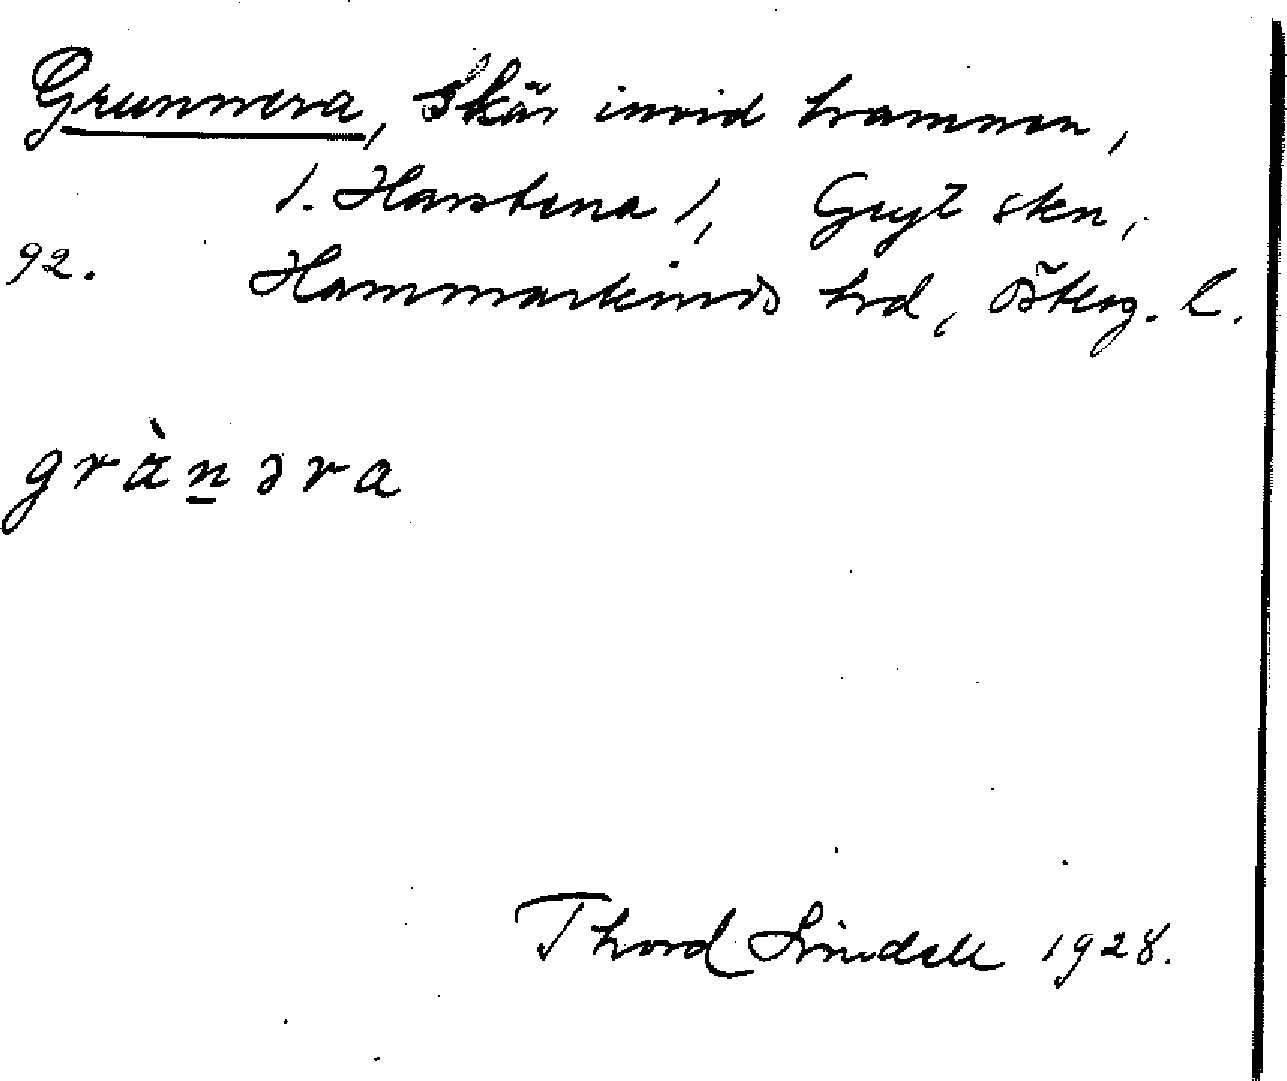 Grunnera, Skär invid hamnen,
/. Harstena /, Gryt skn,
92. Hammarkinds hrd, Östlog. l.
grànəra
Thord Lindell 1928.